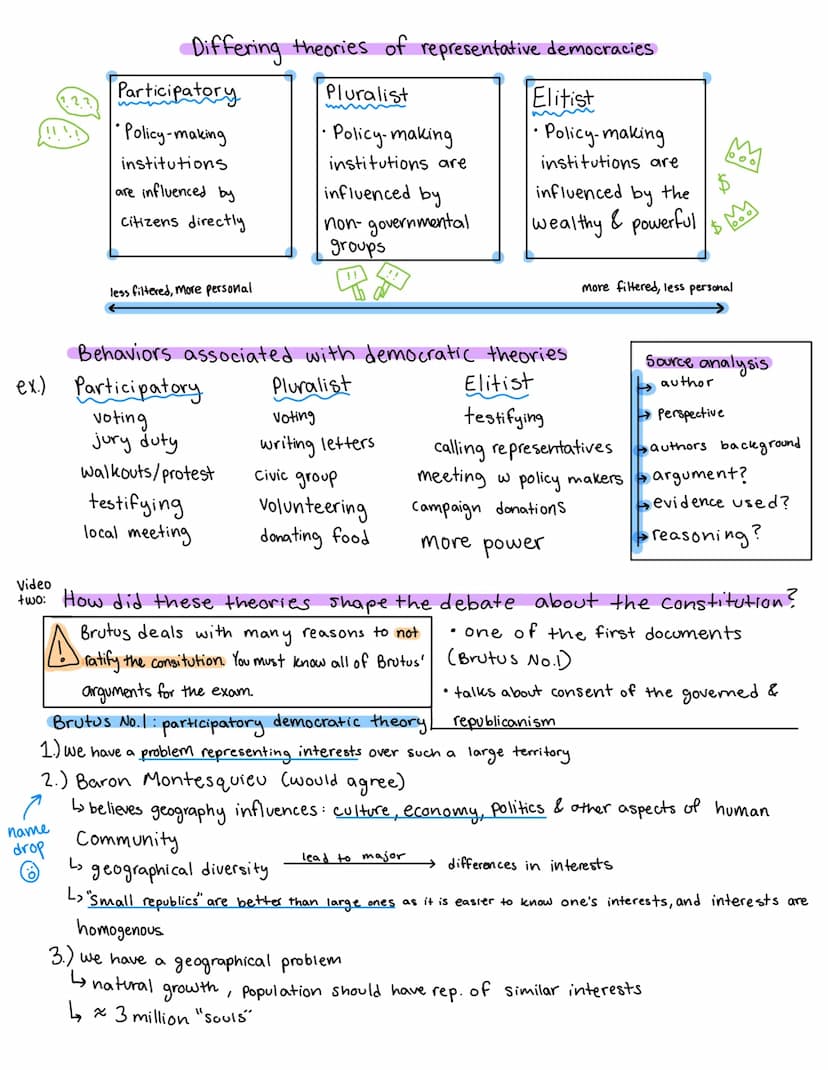 Differing theories of representative democracies
Participatory
• Policy-making
institutions
are influenced by
citizens directly
Pluralist
• Policy-making
institutions are
influenced by
non-governmental
groups
Elitist
• Policy-making
institutions are
influenced by the
wealthy & powerful
???
!!!!
$
$
!!
!!
less filtered, more personal
more filtered, less personal
Behaviors associated with democratic theories
ex.)
Participatory
voting
jury duty
walkouts/protest
testifying
local meeting
Pluralist
voting
writing letters
civic group
volunteering
donating food
Elitist
testifying
calling representatives
meeting w policy makers
campaign donations
more power
Source analysis
→ author
→ perspective
→ authors background
→ argument?
→ evidence used?
→ reasoning?
Video
two: How did these theories shape the debate about the constitution?
! Brutus deals with many reasons to not
ratify the consitution. You must know all of Brutus'
arguments for the exam.
• one of the first documents
(Brutus No.1)
• talks about consent of the governed &
republicanism
Brutus No.1: participatory democratic theory
1.) we have a problem representing interests over such a large territory
2.) Baron Montesquieu (would agree)
name
drop
↳ believes geography influences: culture, economy, politics & other aspects of human
community
↳ geographical diversity lead to major → differences in interests
↳ "Small republics" are better than large ones as it is easier to know one's interests, and interests are
homogenous.
3.) we have a geographical problem
↳ natural growth, population should have rep. of similar interests
↳ ≈ 3 million "souls"